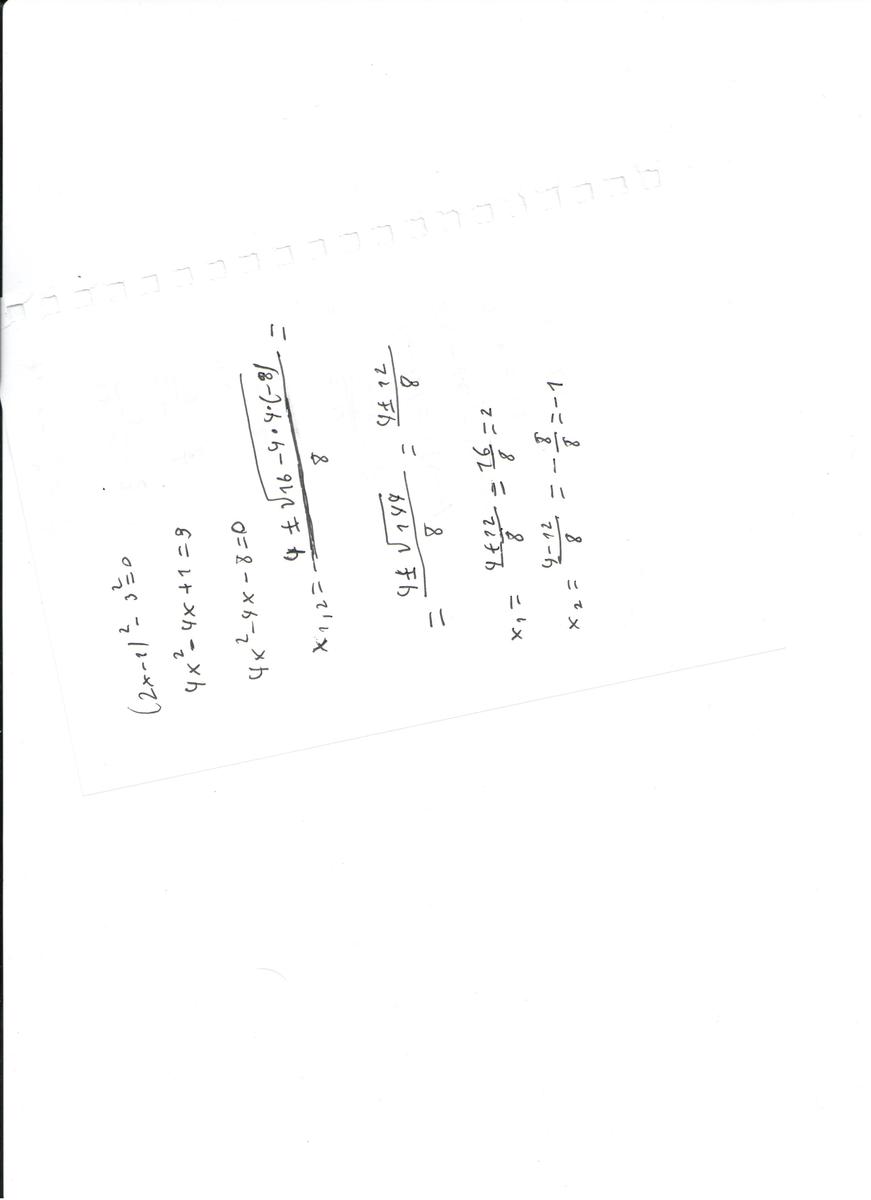 (2x-1)²-3²=0
4x²-4x+1=9
4x²-4x-8=0
x₁,₂=(4±√(16-4·4·(-8)))/8=
=(4±√144)/8=(4±12)/8
x₁=(4+12)/8=16/8=2
x₂=(4-12)/8=-8/8=-1